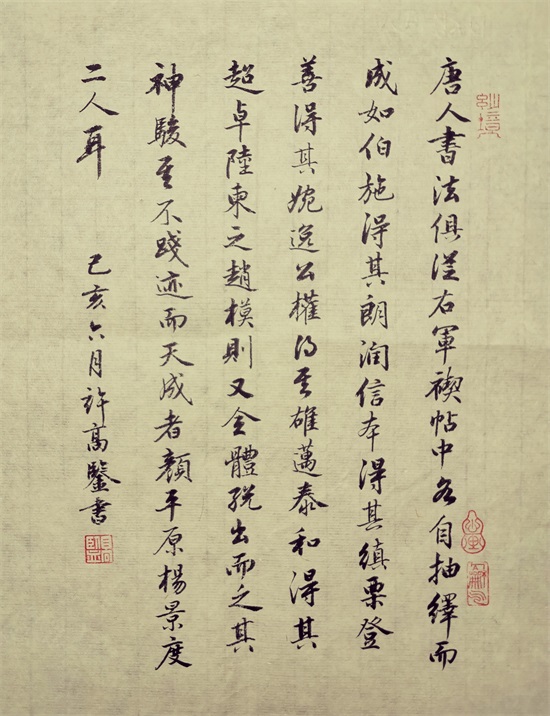 唐人書法俱從右軍禊帖中各自抽繹而
成如伯施得其朗潤信本得其縝栗登
善得其婉逸公權得其雄邁泰和得其
超卓陸東之趙模則又全體脫出而乏其
神駿其不踐迹而天成者顏平原楊景度
二人耳
己亥六月許高鑒書